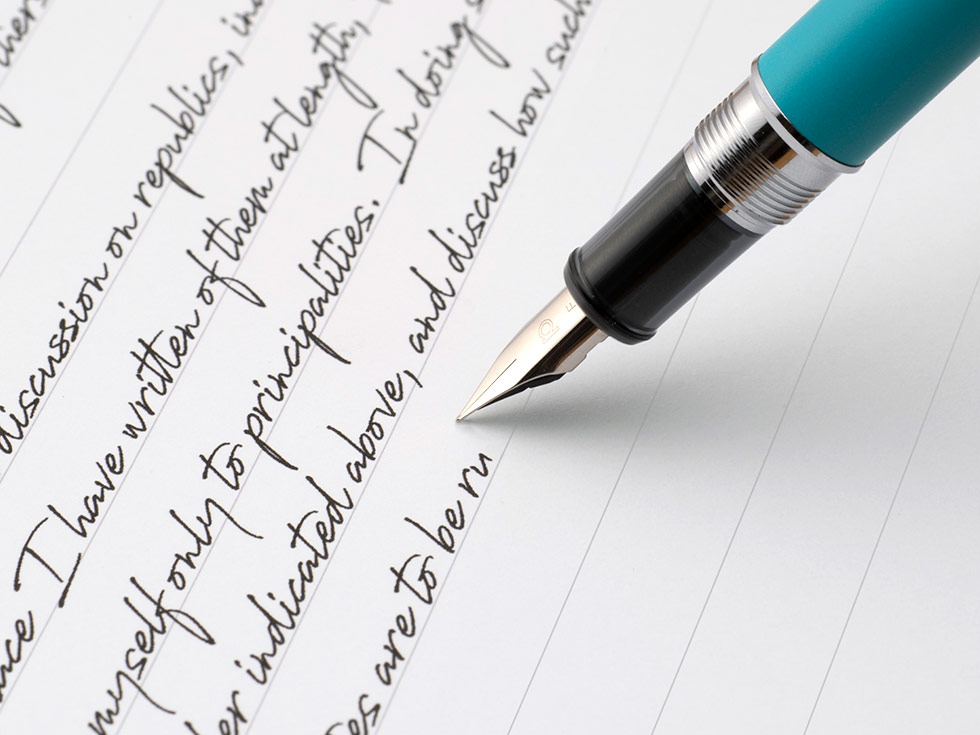 discussion on republics,
I have written of them at length,
myself only to principalities. In doing
indicated above, and discuss how such
are to be ru
F